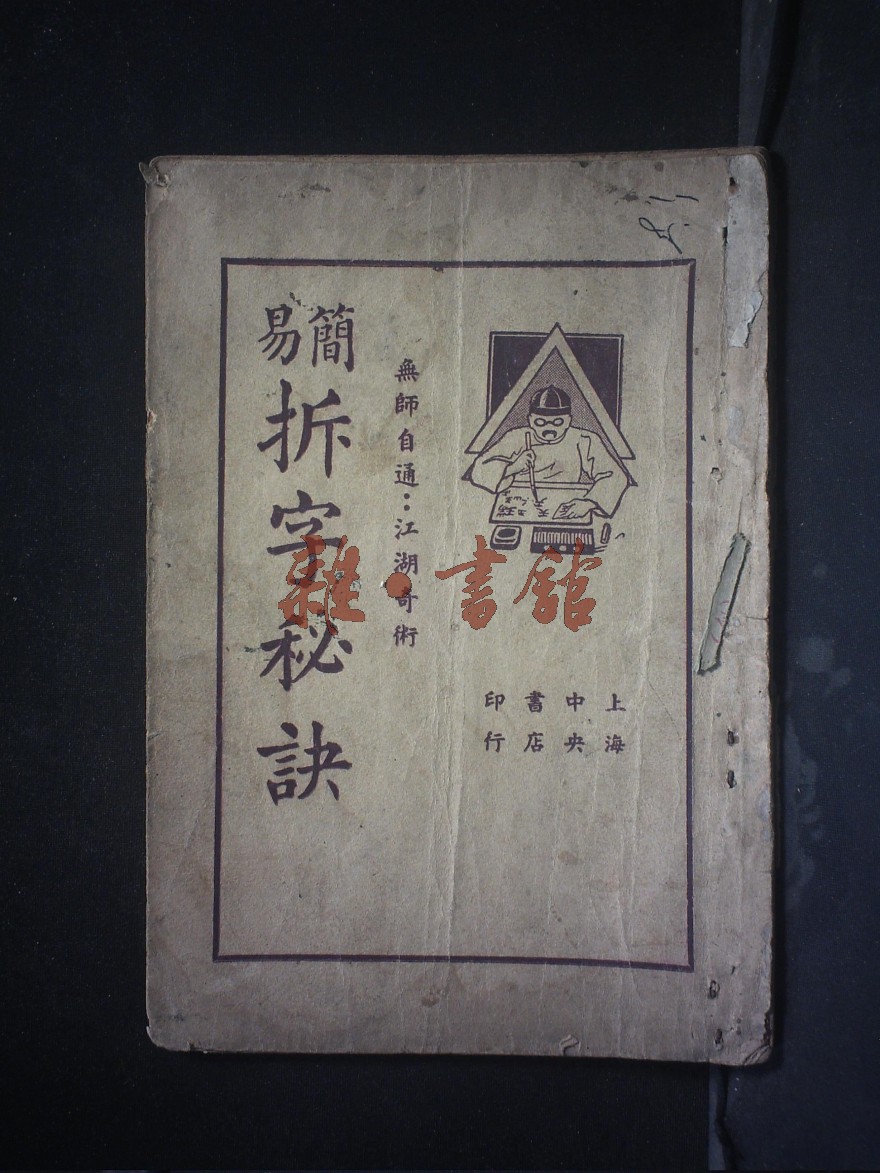 上海
中央
書店
印行
無師自通：江湖奇術
簡易
拆字秘訣
雜·書館